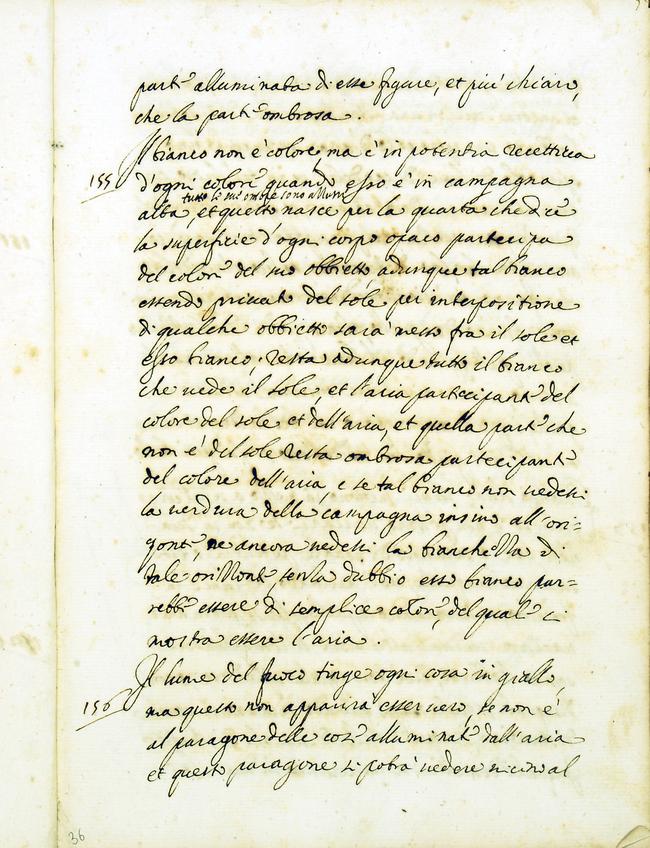 parte alluminata di esse figure, et più chiaro,
che la parte ombrosa.
155 Il bianco non è colore, ma è in potentia recettiva
d'ogni colore quando esso è in campagna
tutte le sue ombre sono allumi
alta, et questo nasce per la quarta che dice
la superficie d'ogni corpo opaco partecipa
del colore del suo obbietto, adunque tal bianco
essendo privato del sole per interpositione
di qualche obbietto sarà messo fra il sole et
esso bianco, resta adunque tutto il bianco
che vede il sole, et l'aria partecipante del
colore del sole et dell'aria, et quella parte che
non è del sole resta ombrosa partecipante
del colore dell'aria, e se tal bianco non vedessi
la verdura della campagna insino all'ori=
zonte, ne ancora vedessi la bianchezza di
tale orizzonte, senza dubbio esso bianco par=
rebbe essere di semplice colore, del quale ci
mostra essere l'aria.
156 Il lume del fuoco tinge ogni cosa in giallo,
ma questo non apparirà esser vero, se non è
al paragone delle cose alluminate dall'aria
et questo paragone si potrà vedere vicino al
36